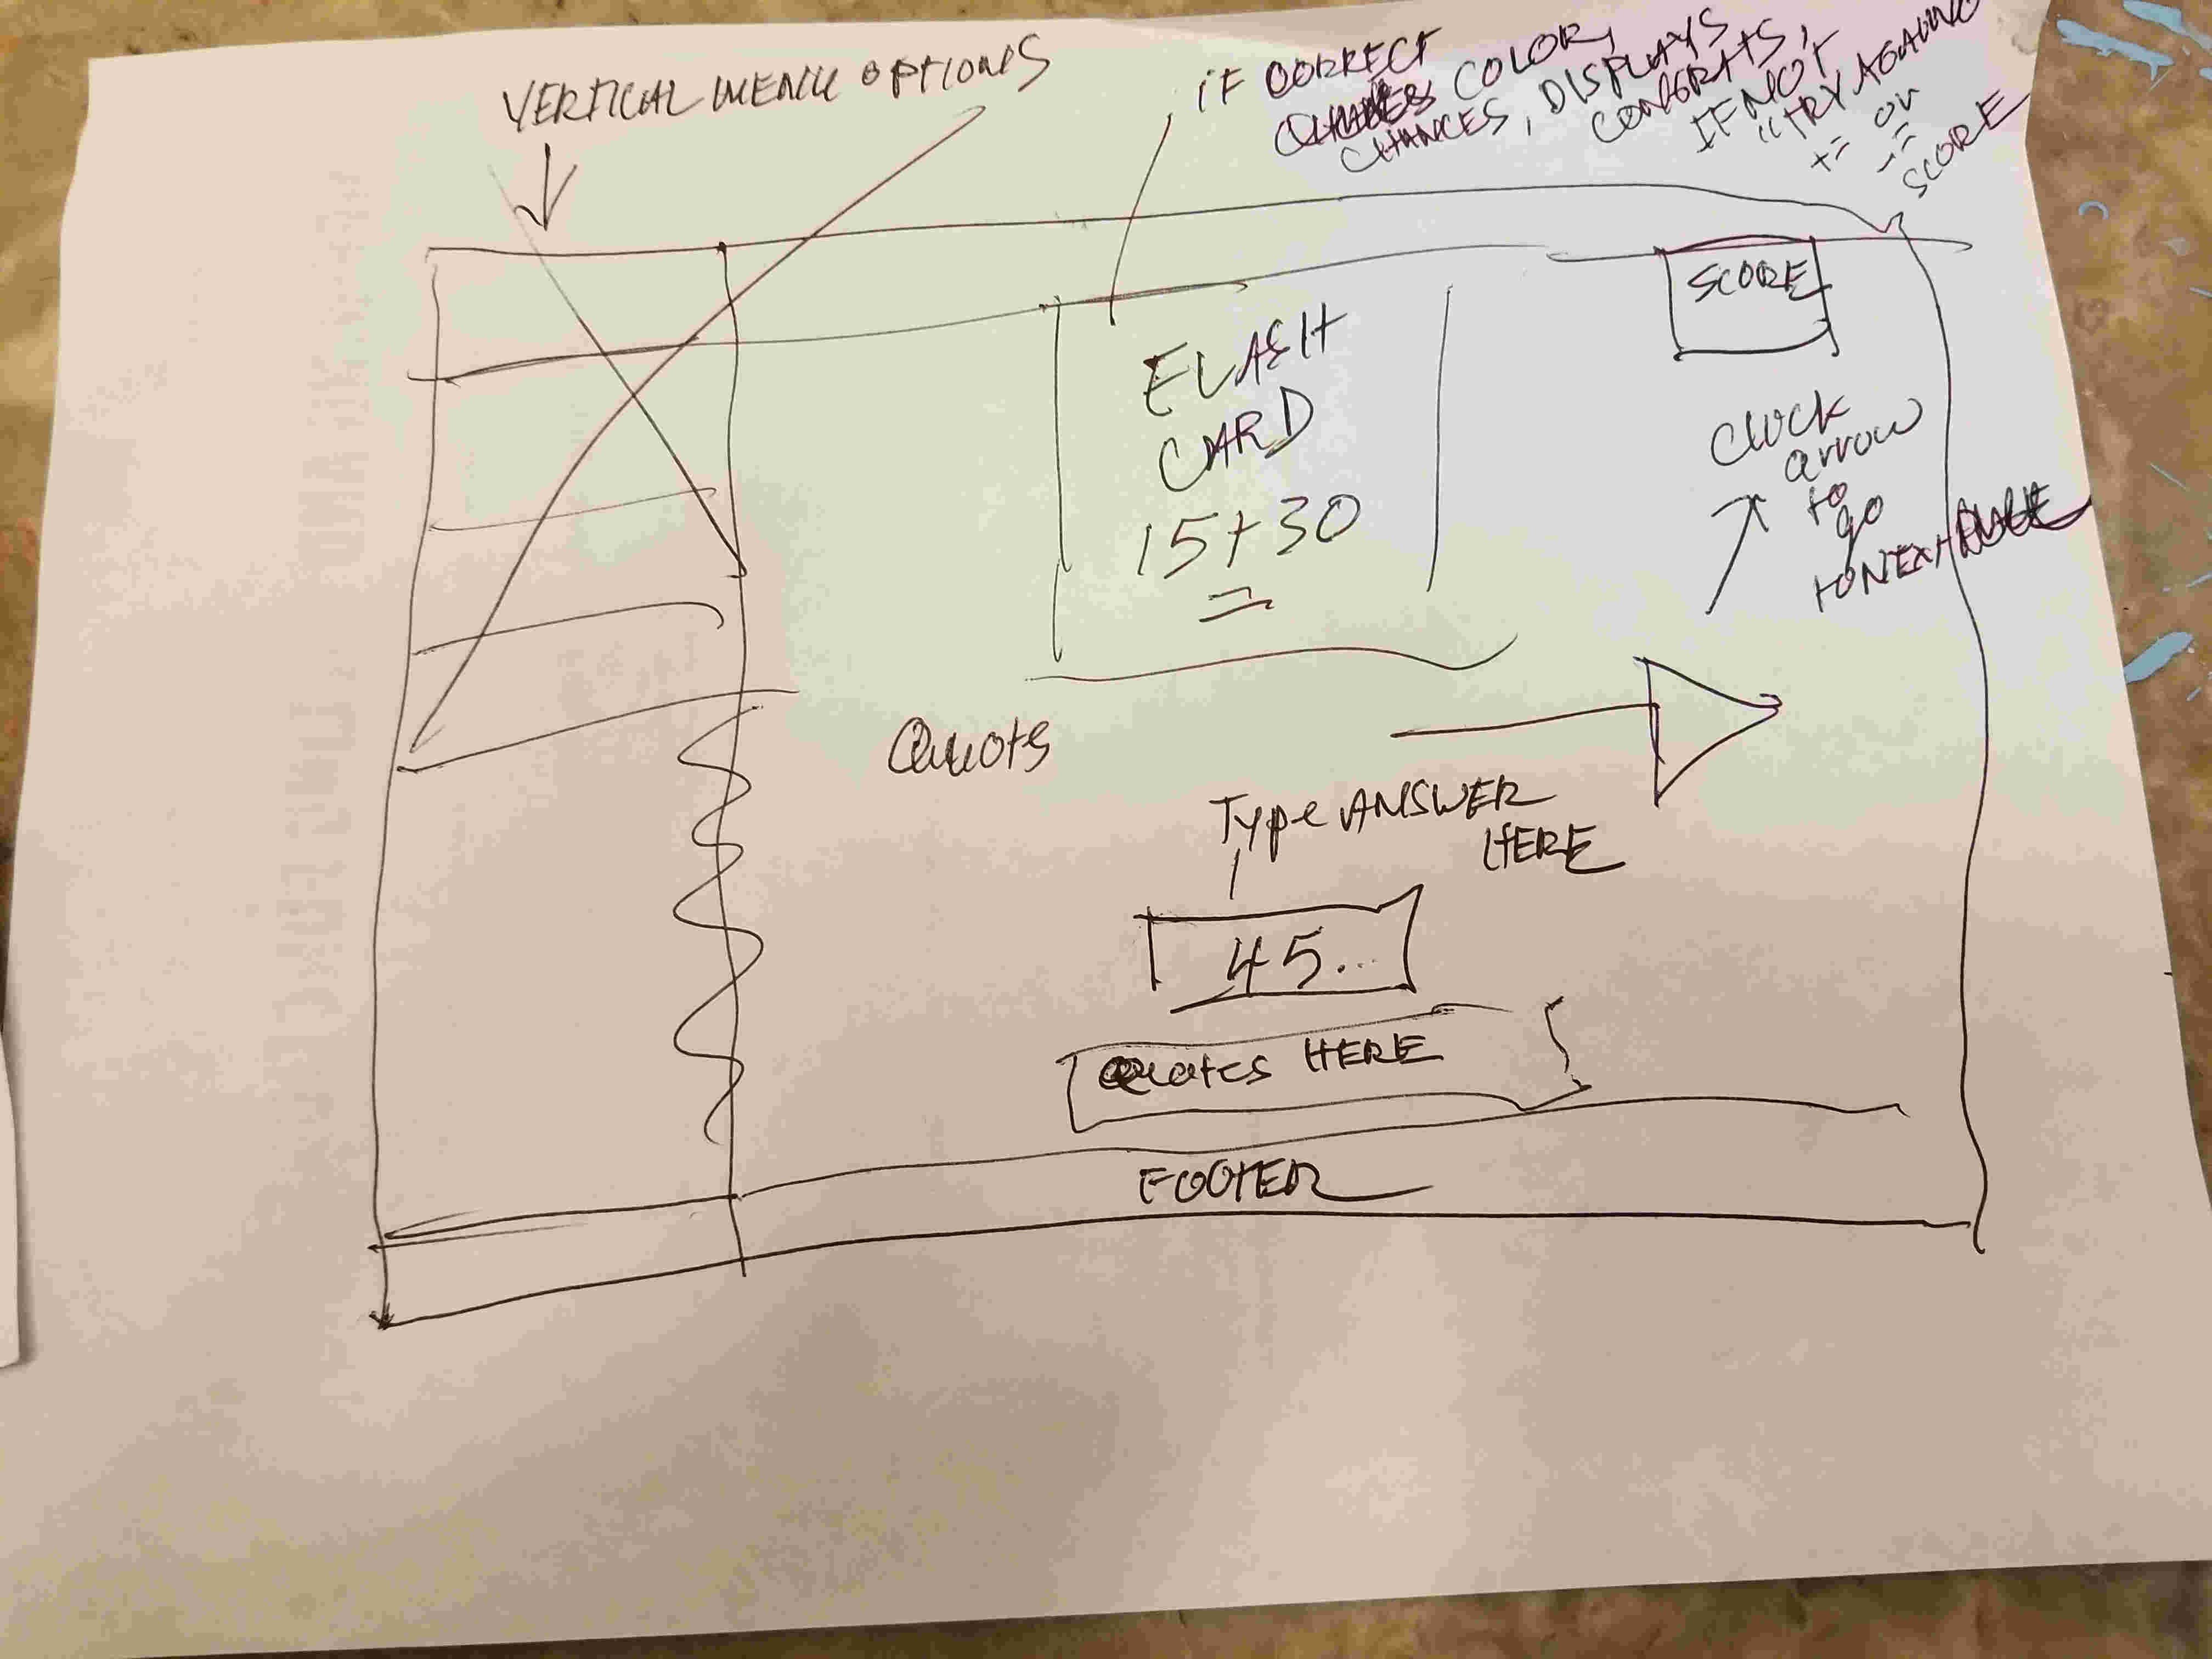 VERTICAL MENU OPTIONS
IF CORRECT
COLOR,
CHANGES, DISPLAYS
CONGRATS,
IF NOT
"TRY AGAIN"
+= or
-=
SCORE
SCORE
FLASH
CARD
15+30
=
Click
arrow
to
go
to NEXT
Quots
Type ANSWER
HERE
45...
Quotes HERE
FOOTER